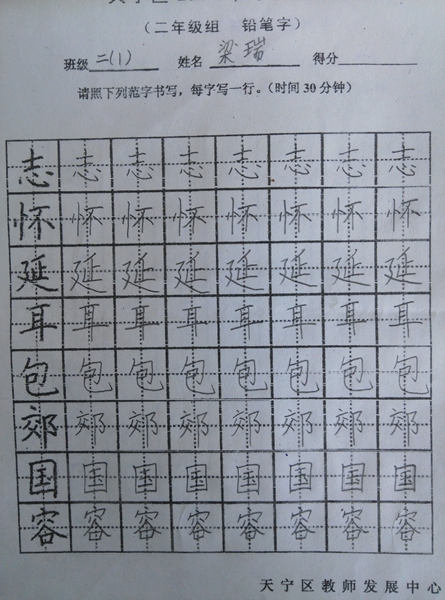 （二年级组 铅笔字）
班级 二(1) 姓名 梁瑞 得分
请照下列范字书写，每字写一行。（时间30分钟）
志 志 志 志 志 志 志 志
怀 怀 怀 怀 怀 怀 怀 怀
延 延 延 延 延 延 延 延
耳 耳 耳 耳 耳 耳 耳 耳
包 包 包 包 包 包 包 包
郊 郊 郊 郊 郊 郊 郊 郊
国 国 国 国 国 国 国 国
容 容 容 容 容 容 容 容
天宁区教师发展中心